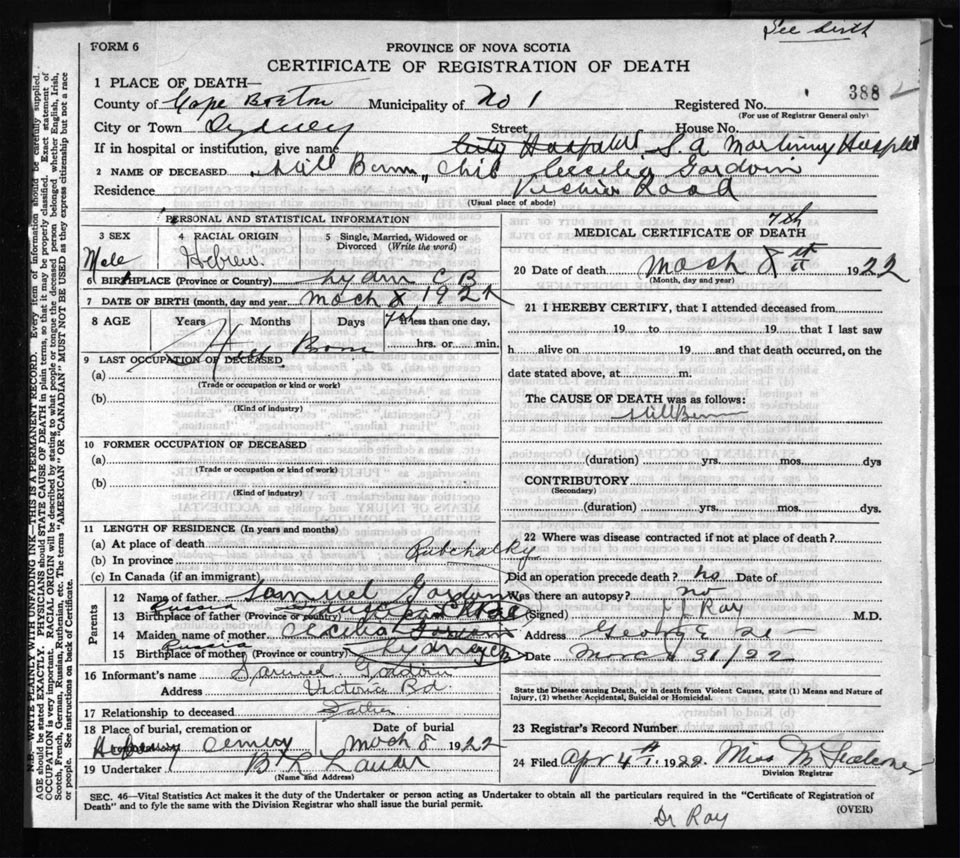 See birth
FORM 6
PROVINCE OF NOVA SCOTIA
CERTIFICATE OF REGISTRATION OF DEATH
1 PLACE OF DEATH—
County of Cape Breton Municipality of No 1 Registered No. 388
(For use of Registrar General only)
City or Town Sydney Street House No.
If in hospital or institution, give name City Hospital, S.A Hospital
2 NAME OF DECEASED Still Born, Cecelia Gordon
Residence Road
(Usual place of abode)
PERSONAL AND STATISTICAL INFORMATION
3 SEX Male
4 RACIAL ORIGIN Hebrew.
5 Single, Married, Widowed or Divorced (Write the word)
6 BIRTHPLACE (Province or Country) C B
7 DATE OF BIRTH (month, day and year) March 8 192
7th
8 AGE Years Months Days If less than one day,
hrs. or min.
Born
9 LAST OCCUPATION OF DECEASED
(a)
(Trade or occupation or kind of work)
(b)
(Kind of industry)
10 FORMER OCCUPATION OF DECEASED
(a)
(Trade or occupation or kind of work)
(b)
(Kind of industry)
11 LENGTH OF RESIDENCE (In years and months)
(a) At place of death
(b) In province
(c) In Canada (if an immigrant)
Parents
12 Name of father Samuel Gordon
13 Birthplace of father (Province or country) Russia
14 Maiden name of mother Cecelia
15 Birthplace of mother (Province or country) Russia Sydney
16 Informant's name Samuel Gordon
Address Victoria Rd.
17 Relationship to deceased Father
18 Place of burial, cremation or Date of burial
March 8 1922
19 Undertaker
(Name and Address)
MEDICAL CERTIFICATE OF DEATH
7th
20 Date of death March 8th 1922
(Month, day and year)
21 I HEREBY CERTIFY, that I attended deceased from
19 to 19 that I last saw
h alive on 19 and that death occurred, on the
date stated above, at m.
The CAUSE OF DEATH was as follows:
Still Born
(duration) yrs. mos. dys
CONTRIBUTORY
(Secondary)
(duration) yrs. mos. dys.
22 Where was disease contracted if not at place of death?
Did an operation precede death? no Date of
Was there an autopsy? no
(Signed) Ray M.D.
Address George St
Date March 31/22
State the Disease causing Death, or in death from Violent Causes, state (1) Means and Nature of
Injury, (2) whether Accidental, Suicidal or Homicidal.
23 Registrar's Record Number
24 Filed Apr 4th 1922 Miss M
Division Registrar
SEC. 46—Vital Statistics Act makes it the duty of the Undertaker or person acting as Undertaker to obtain all the particulars required in the "Certificate of Registration of
Death" and to fyle the same with the Division Registrar who shall issue the burial permit.
(OVER)
Dr Ray
N.B.—WRITE PLAINLY WITH UNFADING INK—THIS IS A PERMANENT RECORD. Every item of information should be carefully supplied.
AGE should be stated EXACTLY. PHYSICIANS should STATE CAUSE OF DEATH in plain terms, so that it may be properly classified. Exact statement of
OCCUPATION is very important. RACIAL ORIGIN will be described by stating to what people or tongue the deceased person belonged whether English, Irish,
Scotch, French, German, Russian, Ruthenian, etc. The terms "AMERICAN" OR "CANADIAN" MUST NOT BE USED as they express citizenship but not a race
or people. See instructions on back of Certificate.